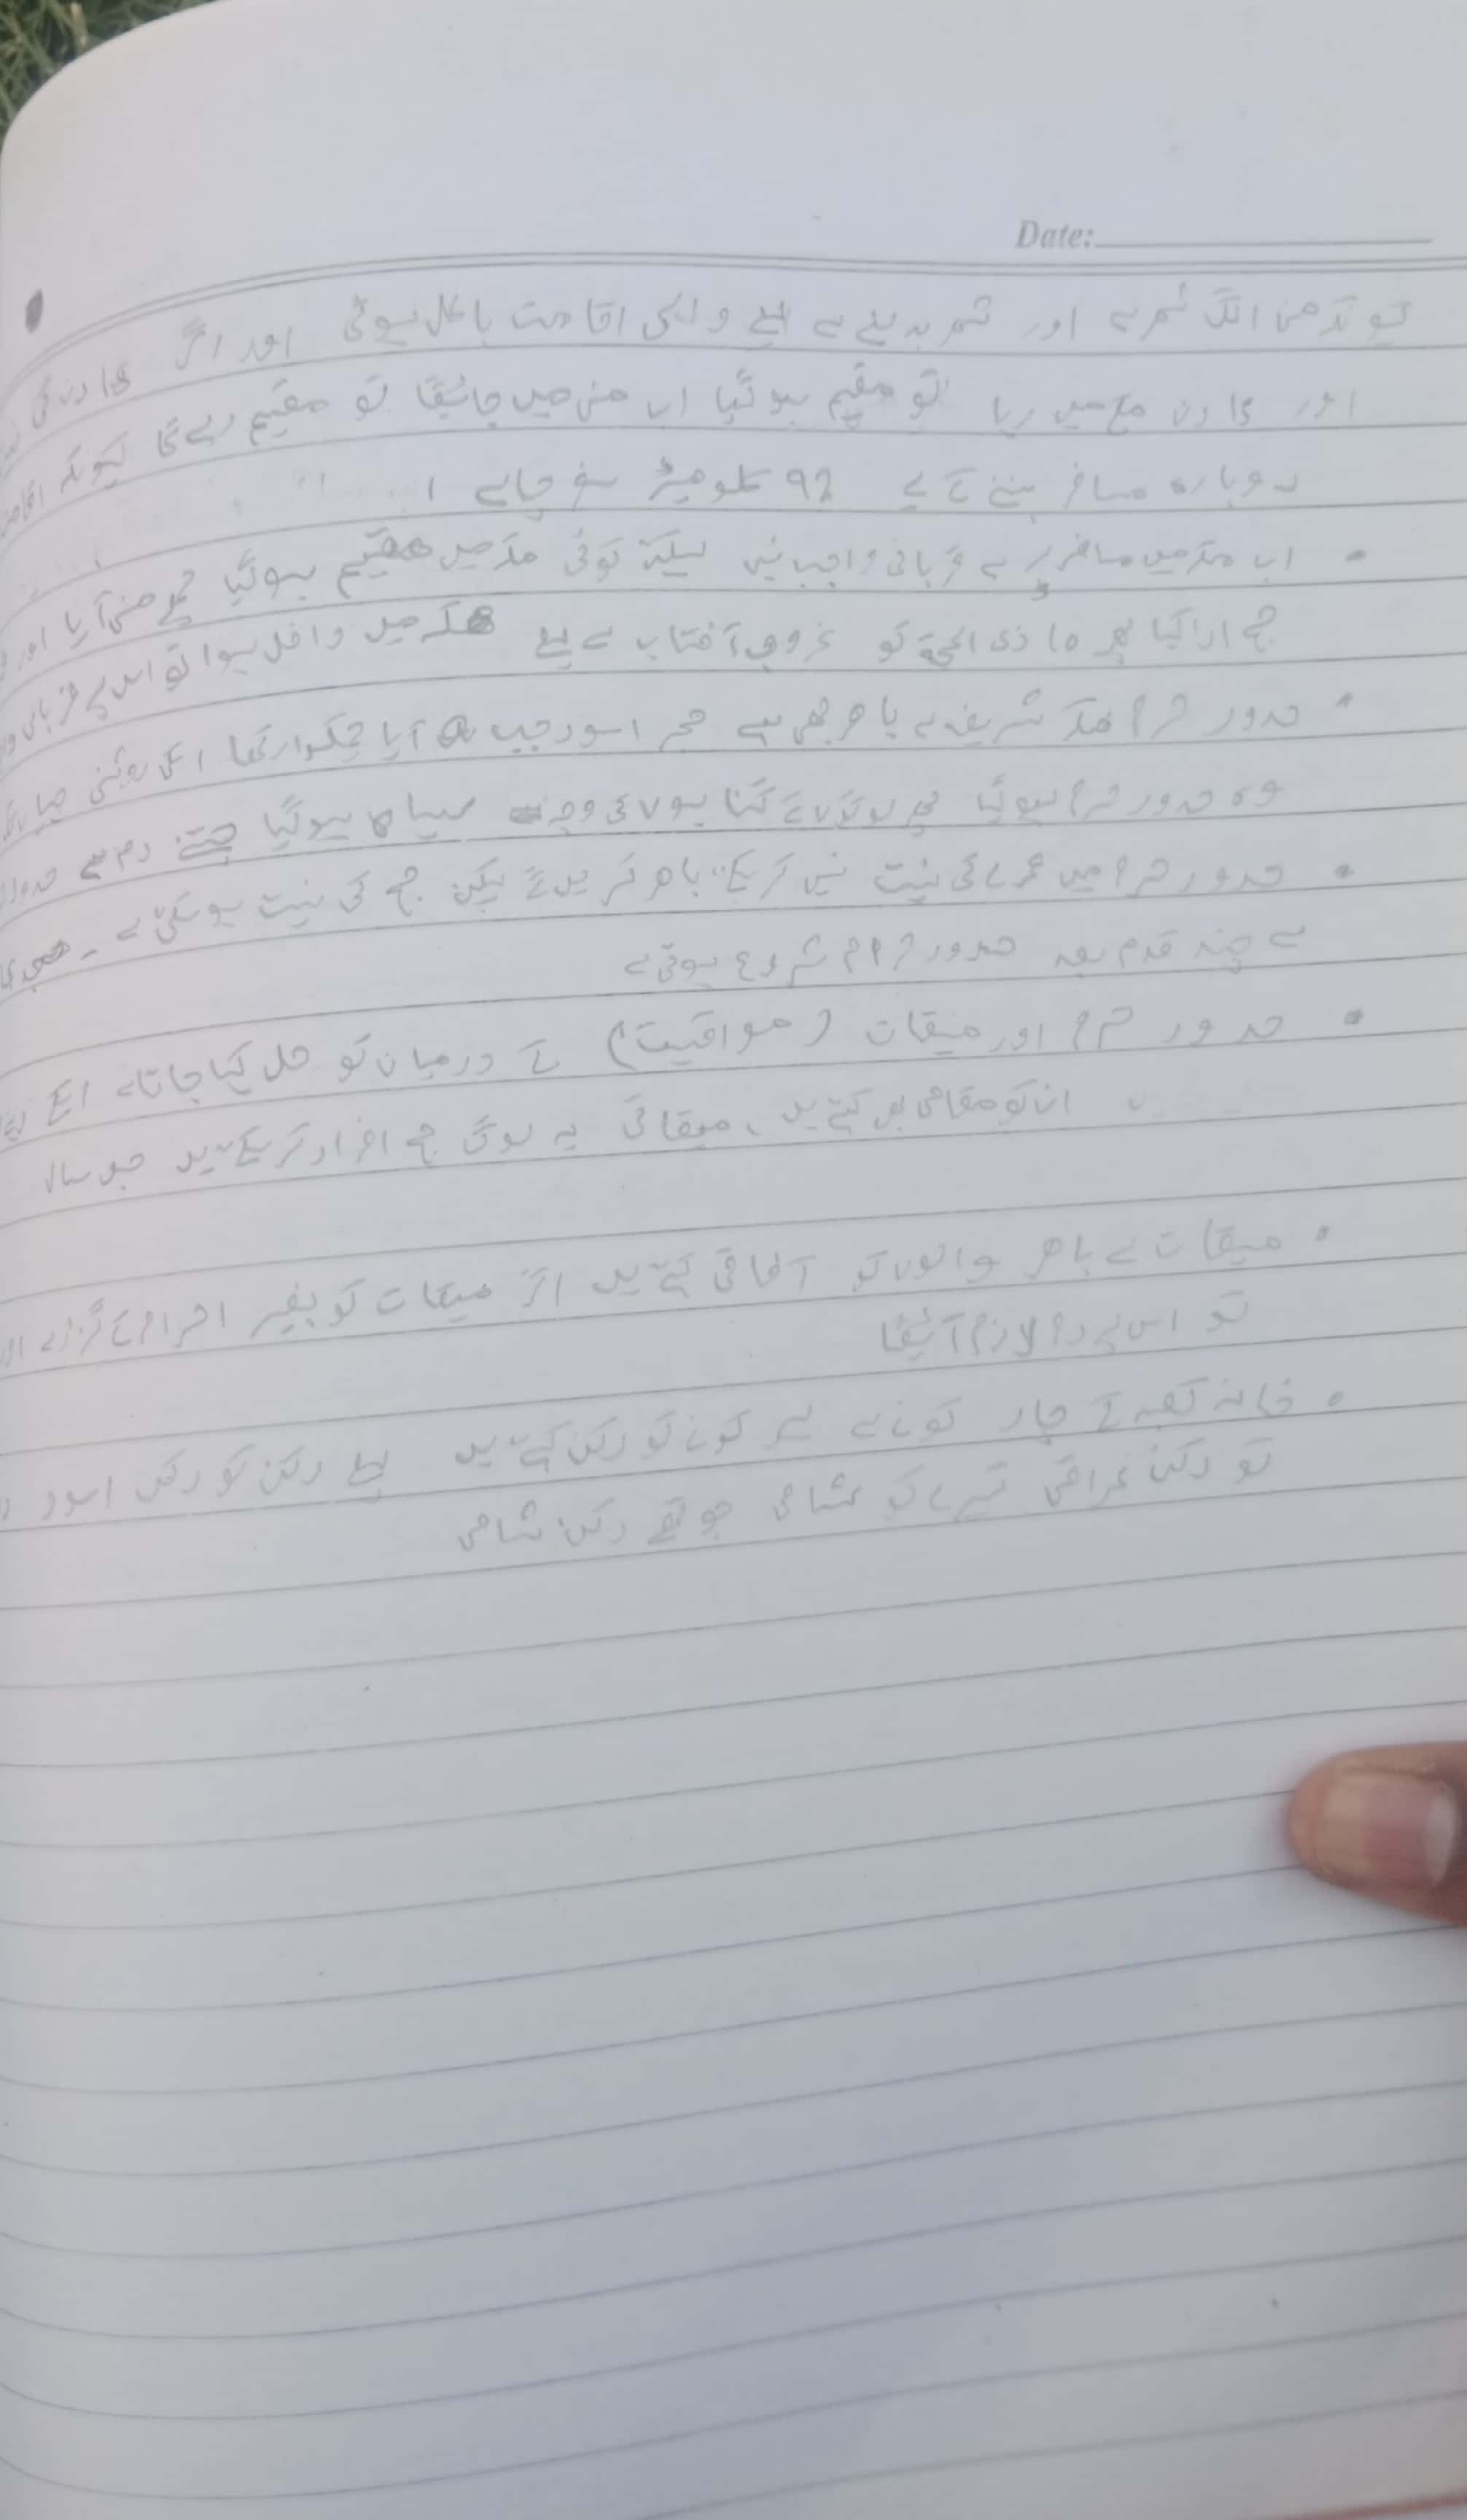 Date:
کیونکہ منی الگ شہر ہے اور شہر بدلنے سے پہلے والی اقامت باطل ہوگئی اور اگر 15 دن کی
اور 15 دن مکہ میں رہا تو مقیم ہوگیا اب منی میں جائیگا تو مقیم رہے گا کیونکہ
دوبارہ مسافر بننے کے لے 92 کلومیڑ سفر چاہے
• اب مکہ میں مسافر پر قربانی واجب نہیں لیکن کوئی مکہ میں مقیم ہوگیا منی آیا اور
حج ادا کیا پھر ذی الحجۃ کو غروب آفتاب سے پہلے مکہ میں داخل ہوا تو اس پے قربانی
• حدور حرم مکہ شریف سے باھر بھی ہے حجر اسود جب آیا چمکدار تھا اسکی روشنی جہاں تک
وہ حدور حرم ہوگیا پھر لوگوں کے گناہوں کی وجہ سے سیاہ ہوگیا
• حدور حرم میں عمرے کی نیت نہیں کر سکتے باھر کریں گے لیکن حج کی نیت ہو سکتی ہے ۔
سے چند قدم بعد حدور حرم شروع ہوتی ہے
• حدور حرم اور میقات (مواقیت) کے درمیان کو حل کہا جاتا ہے
ان کو مقامی بھی کہتے ہیں، میقاتی یہ لوگ حج افراد کر سکتے ہیں جو سال
• میقات سے باھر والوں کو آفاقی کہتے ہیں اگر میقات کو بغیر احرام کے گزرے
تو اس پے دم لازم آئیگا
• خانہ کعبہ کے چار کونے ہے ہر کونے کو رکن کہتے ہیں پہلے رکن کو رکن اسود
تو رکن عراقی تیسرے کو شامی چوتھے رکن شامی